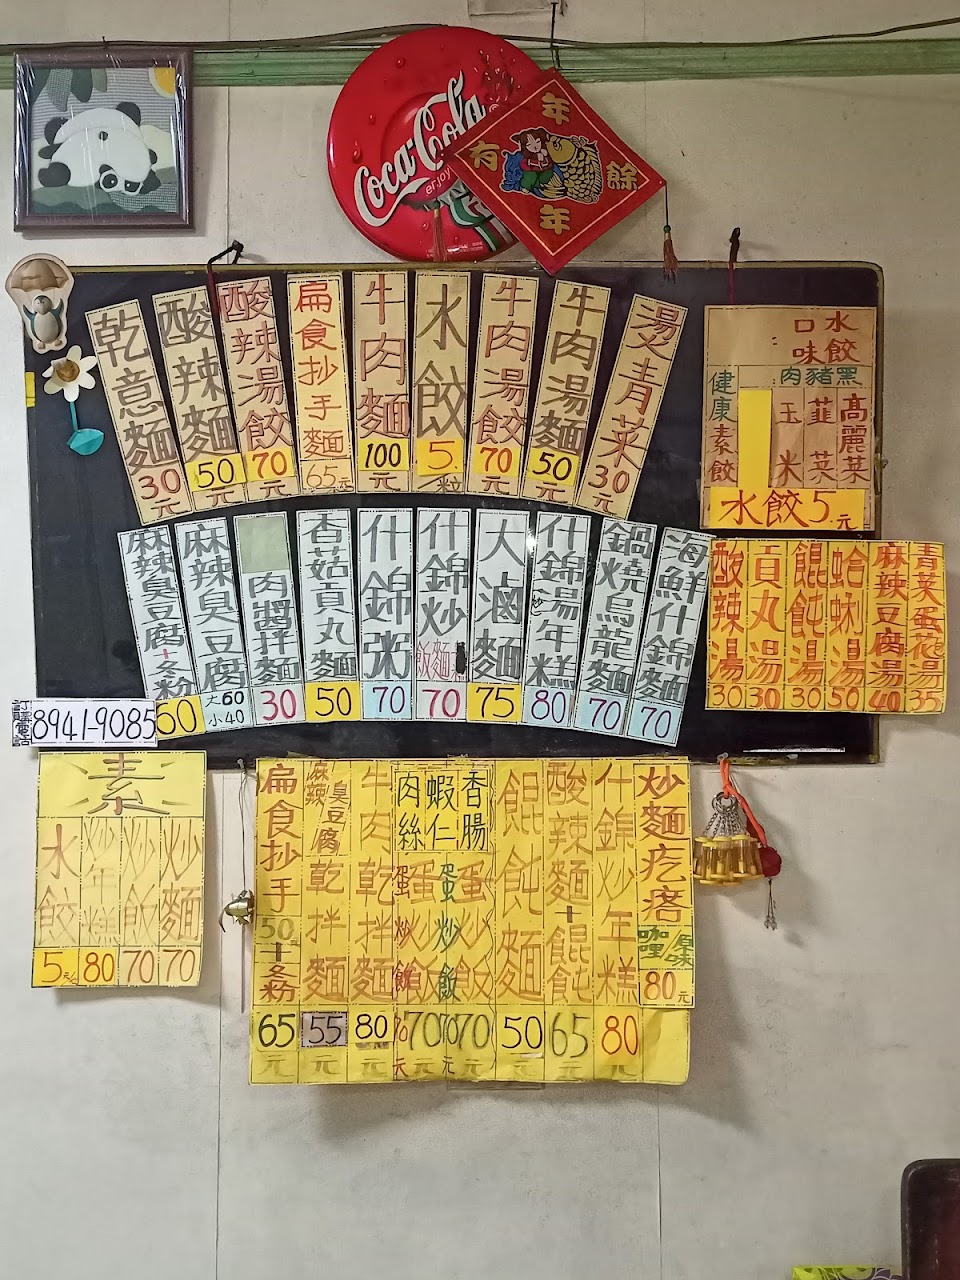 Coca-Cola
enjoy
年
有
餘
年
乾意麵 30元
酸辣麵 50元
酸辣湯餃 70元
扁食抄手麵 65元
牛肉麵 100元
水餃 5元/粒
牛肉湯餃 70元
牛肉湯麵 50元
燙青菜 30元
水餃口味
黑豬肉
高麗菜
韮菜
玉米
健康素餃
水餃5元
麻辣臭豆腐+冬粉 60
麻辣臭豆腐 大60 小40
肉醬拌麵 30
香菇貢丸麵 50
什錦粥 70
什錦炒飯麵 70
大滷麵 75
什錦湯年糕 80
鍋燒烏龍麵 70
海鮮什錦麵 70
酸辣湯 30
貢丸湯 30
餛飩湯 30
蛤蜊湯 50
麻辣豆腐湯 40
青菜蛋花湯 35
8941-9085
素
水餃 5元/
炒年糕 80
炒飯 70
炒麵 70
扁食抄手 50
+冬粉 65元
麻辣臭豆腐乾拌麵 55元
牛肉乾拌麵 80元
肉絲蛋炒飯 70元
蝦仁蛋炒飯 70
香腸蛋炒飯 70
餛飩麵 50元
酸辣麵+餛飩 65元
什錦炒年糕 80元
炒麵疙瘩
咖哩/原味
80元